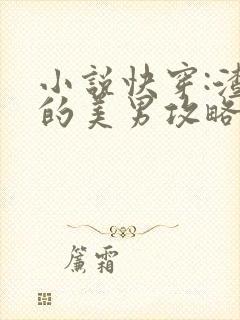 小说快穿:渣
的美男攻略
簾霜